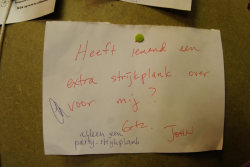 Heeft iemand een
extra strijkplank over
voor mij?
Grtz.
Josin
alleen een
party-strijkplank